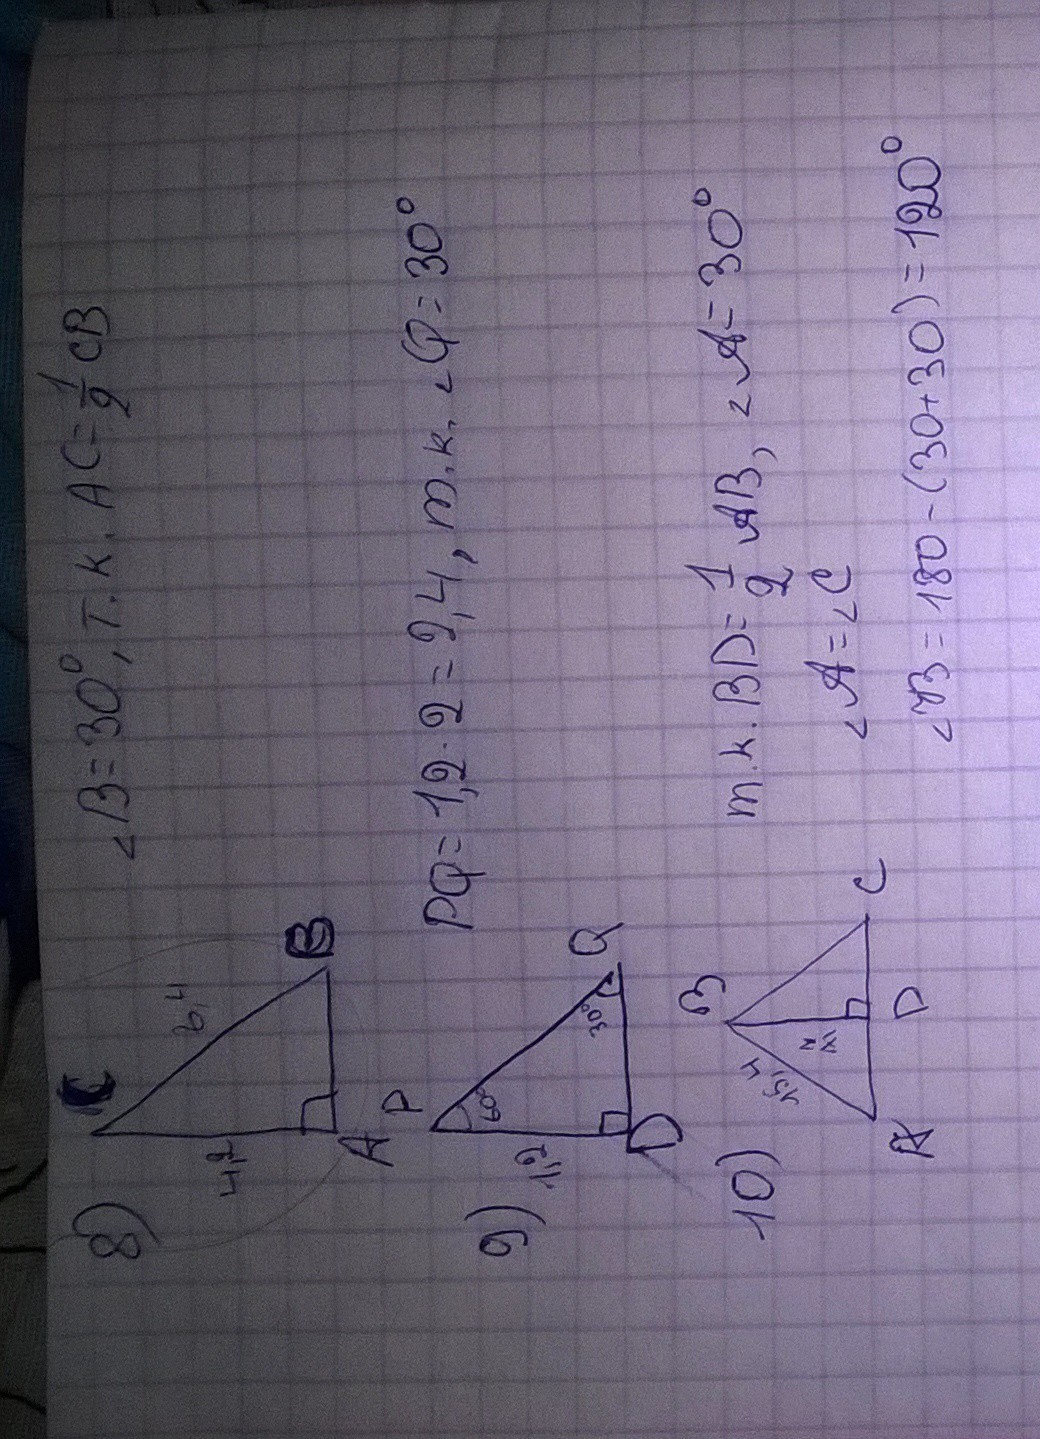 8)
C
4,2
A
B
∠B=30°, т.к. AC=1/2 CB
9)
P
60°
1,2
D
30°
Q
PQ=1,2·2=2,4, т.к. ∠Q=30°
10)
B
15,4
A
D
C
т.к. BD=1/2 AB, ∠A=30°
∠A=∠C
∠B=180-(30+30)=120°